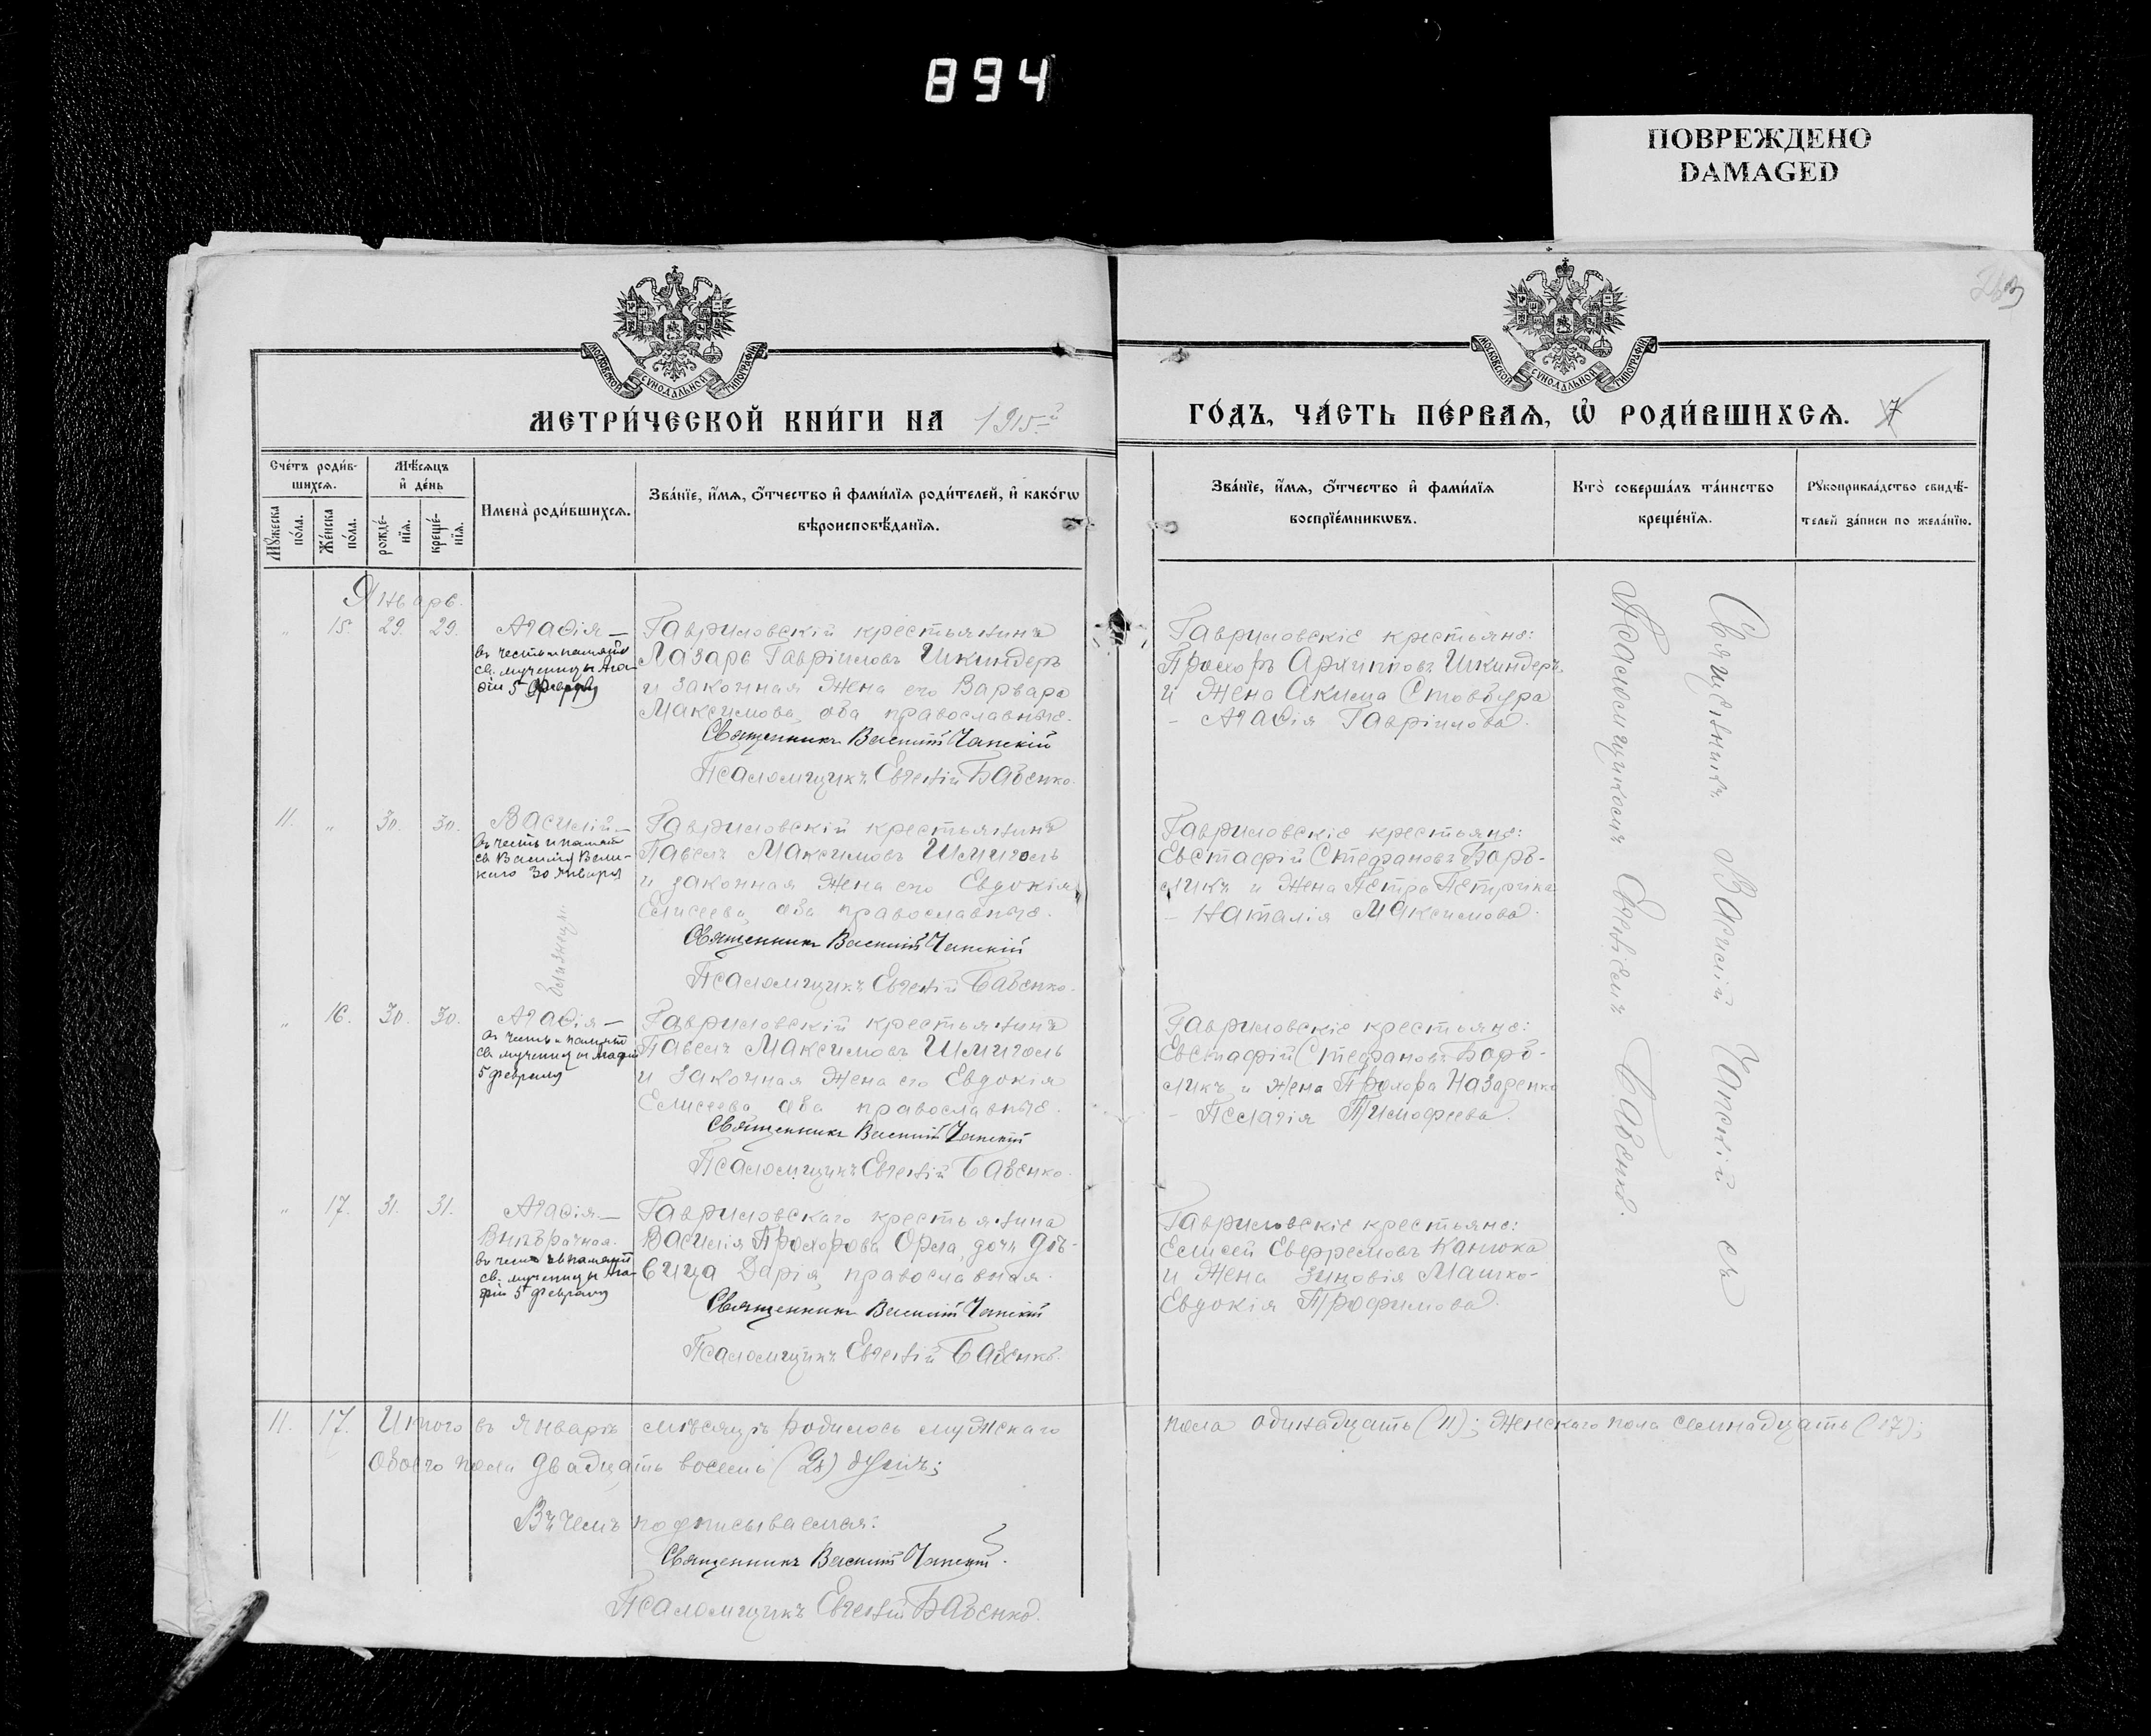 894
ПОВРЕЖДЕНО
DAMAGED
МОСКОВСКОЙ СУНОДАЛЬНОЙ ТИПОГРАФІИ
МОСКОВСКОЙ СУНОДАЛЬНОЙ ТИПОГРАФІИ
МЕТРИ́ЧЕСКОЙ КНИ́ГИ НА 1915й
ГО́ДЪ, ЧА́СТЬ ПЕ́РВАѦ, Ѡ҆ РОДИ́ВШИХСѦ. 7
Сче́тъ роди́в-
шихсѧ.
Мꙋ́жеска
по́ла.
Же́нска
по́ла.
Мѣ́сѧцъ
и҆ де́нь
рожде́-
нїѧ.
креще́-
нїѧ.
Имена̀ роди́вшихсѧ.
Зва́нїе, и҆́мѧ, о҆́тчество и҆ фами́лїѧ роди́телей, и҆ како́гѡ
вѣроисповѣ́данїѧ.
Зва́нїе, и҆́мѧ, о҆́тчество и҆ фами́лїѧ
воспрїе́мникѡвъ.
Кто̀ соверша́лъ та́инство
креще́нїѧ.
Рꙋкоприкла́дство свидѣ́-
телей за́писи по жела́нїю.
Январь.
" 15. 29. 29. Агаѳія —
въ честь и память
св. мученицы Ага-
ѳіи 5 Февраля
Гавриловскій крестьянинъ
Лазарь Гавріиловъ Шкиндеръ
и законная жена его Варвара
Максимова, оба православные.
Священникъ Василій Чапскій
Псаломщикъ Евгеній Бабенко.
Гавриловскіе крестьяне:
Прохоръ Архиповъ Шкиндеръ
и жена Акима Стовбура
– Агаѳія Гавріилова.
11. " 30. 30. Василій —
въ честь и память
св. Василія Вели-
каго 30 января
Близнецы.
Гавриловскій крестьянинъ
Павелъ Максимовъ Шмиголь
и законная жена его Евдокія
Елисеева, оба православные.
Священникъ Василій Чапскій
Псаломщикъ Евгеній Бабенко.
Гавриловскіе крестьяне:
Евстафій Стефановъ Боръ-
ликъ и жена Петра Петрика
– Наталія Максимова.
" 16. 30. 30. Агаѳія —
въ честь и память
св. мученицы Агафіи
5 февраля
Гавриловскій крестьянинъ
Павелъ Максимовъ Шмиголь
и законная жена его Евдокія
Елисеева, оба православные.
Священникъ Василій Чапскій
Псаломщикъ Евгеній Бабенко.
Гавриловскіе крестьяне:
Евстафій Стефановъ Боръ-
ликъ и жена Прохора Назаренка
– Пелагія Тимофеева.
" 17. 31. 31. Агаѳія. —
Внѣбрачная.
въ честь и память
св. мученицы Ага-
фіи 5 февраля
Гавриловскаго крестьянина
Василія Прохорова Орла, дочь дѣ-
вица Дарія, православная.
Священникъ Василій Чапскій
Псаломщикъ Евгеній Бабенко.
Гавриловскіе крестьяне:
Елисей Евфремовъ Канюка
и жена Зиновія Машко-
Евдокія Трофимова.
Священникъ Василій Чапскій съ
Псаломщикомъ Евгеніемъ Бабенко.
11. 17. Итого въ Январѣ мѣсяцѣ родилось мужскаго
пола одинадцать (11); женскаго пола семнадцать (17);
обоего пола двадцать восемь (28) душъ;
Въ чемъ подписываемся:
Священникъ Василій Чапскій.
Псаломщикъ Евгеній Бабенко.